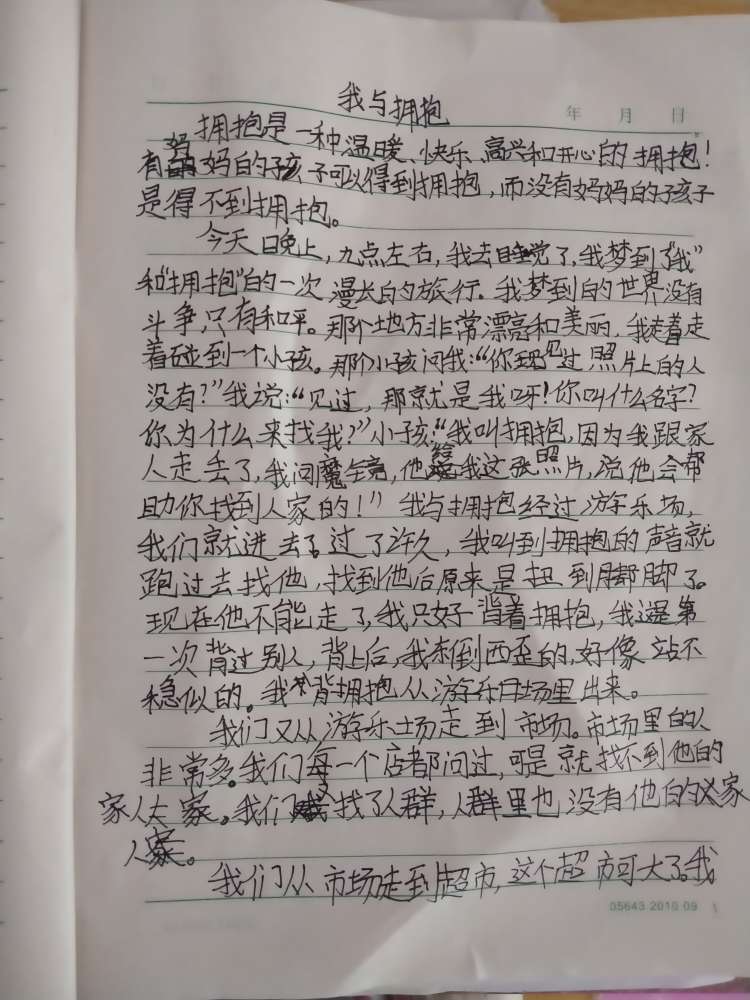 我与拥抱
年 月 日
拥抱是一种温暖、快乐、高兴和开心的拥抱！
有妈妈的孩子可以得到拥抱，而没有妈妈的孩子
是得不到拥抱。
今天晚上，九点左右，我去睡觉了，我梦到了“我”
和“拥抱”的一次漫长的旅行。我梦到的世界没有
斗争，只有和平。那个地方非常漂亮和美丽，我走着走
着碰到一个小孩。那个小孩问我：“你见过照片上的人
没有？”我说：“见过，那就是我呀！你叫什么名字？
你为什么来找我？”小孩：“我叫拥抱，因为我跟家
人走丢了，我问魔镜，他给我这张照片，说他会帮
助你找到人家的！”我与拥抱经过游乐场，
我们就进去了。过了许久，我叫到拥抱的声音就
跑过去找他，找到他后原来是扭到脚了。
现在他不能走了，我只好背着拥抱，我这是第
一次背过别人，背上后，我东倒西歪的，好像站不
稳似的。我背拥抱从游乐场里出来。
我们又从游乐场走到市场。市场里的人
非常多。我们每一个店都问过，可是就找不到他的
家人。我们又找了人群，人群里也没有他的家
人。
我们从市场走到超市，这个超市可大了。我
05643 2016 09